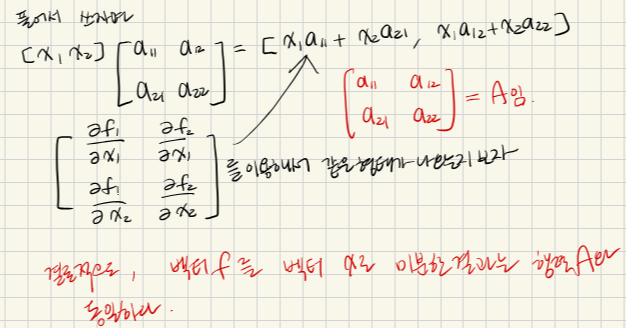 풀어서 쓰자면
[x₁ x₂] [a₁₁ a₁₂; a₂₁ a₂₂] = [x₁a₁₁ + x₂a₂₁, x₁a₁₂+x₂a₂₂]
[a₁₁ a₁₂; a₂₁ a₂₂] = A임.
[∂f₁/∂x₁ ∂f₂/∂x₁; ∂f₁/∂x₂ ∂f₂/∂x₂] 를 이용해서 같은 형태가 나오는지 보자
결론적으로, 벡터 f를 벡터 x로 미분한 결과는 행렬 A와
동일하다.